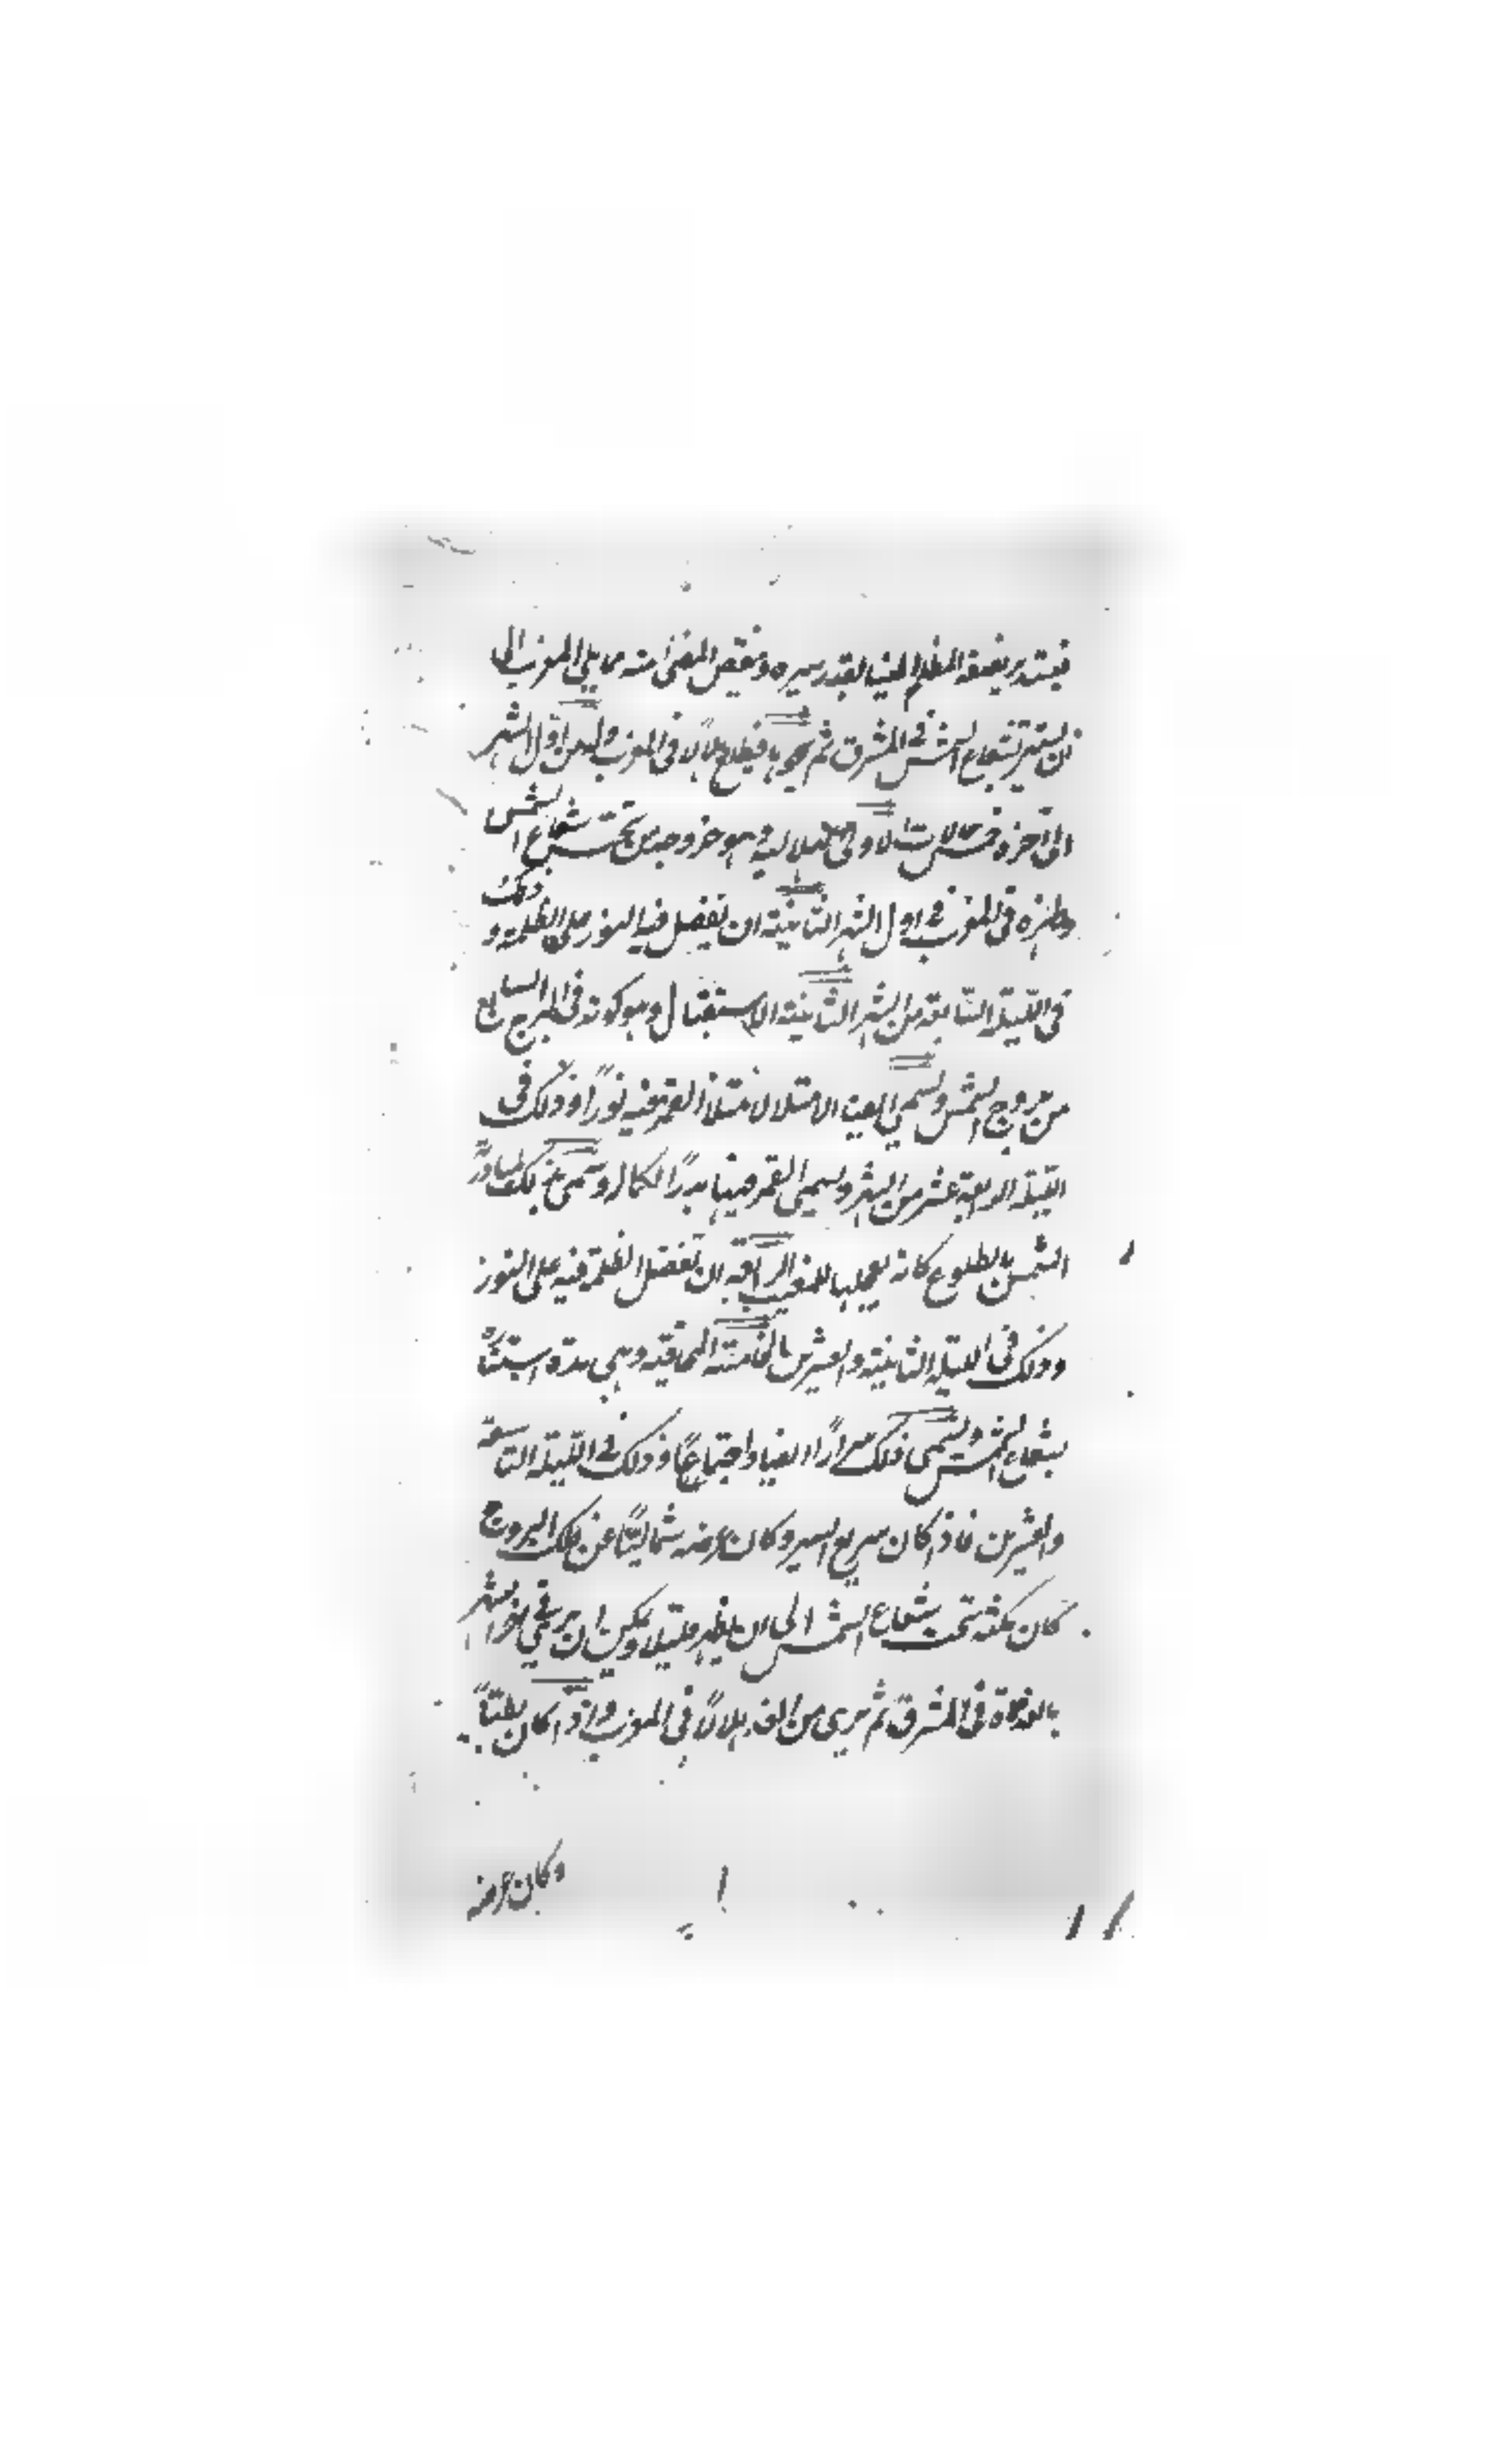 فيستدير نصفه المظلم الينا بقدر سيره وينقص المضئ منه مما يلى المغرب الى
ان يستتر بشعاع الشمس فى المشرق ثم يجوبها فيطلع هلالا فى المغرب وله من اول الشهر
الى آخره خمس حالات الاولى الهلالية وهو خروجه من تحت شعاع الشمس
وظهوره فى المغرب فى اول الشهر الثانية ان يفضل فيه النور على الظلمة و ذلك
فى الليلة السابعة من الشهر الثانية الاستقبال وهو كونه فى البرج السابع
من بروج الشمس ويسمى ايضا الامتلا لامتلأ القمر فيه نورًا وذلك فى
الليلة الرابعة عشر من الشهر ويسمى القمر فيها بدرًا لكماله وسمى بذلك لمبادرة
الشمس بالطلوع كانه يعجلها للمغيب الرابعة ان تفضل الظلمة فيه على النور
وذلك فى الليلة الثانية والعشرين الخامسة المحاقية وهى مدة استتاره
بشعاع الشمس ويسمى ذلك سرارًا ايضا واجتماعًا وذلك فى الليلة التاسعة
والعشرين فاذا كان سريع السير وكان عرضه شماليًا عن فلك البروج
كان مكثه تحت شعاع الشمس الى ان يظهر قليلا ويمكن ان يرى فى آخر الشهر
بالغداة فى المشرق ثم يرى من الغد هلالاً فى المغرب واذا كان بطيئًا
وكان عرضه